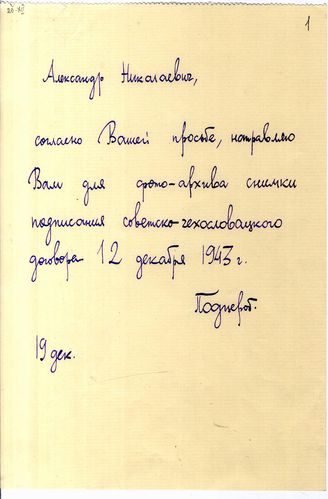 1
Александр Николаевич,
согласно Вашей просьбе, направляю
Вам для фото-архива снимки
подписания советско-чехословацкого
договора 12 декабря 1943 г.
Подцероб.
19 дек.